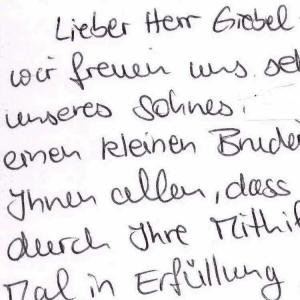 Lieber Herr Giebel
wir freuen uns se
unseres Sohnes.
einen kleinen Bruder
Ihnen allen, dass
durch Ihre Mithi
Mal in Erfüllung